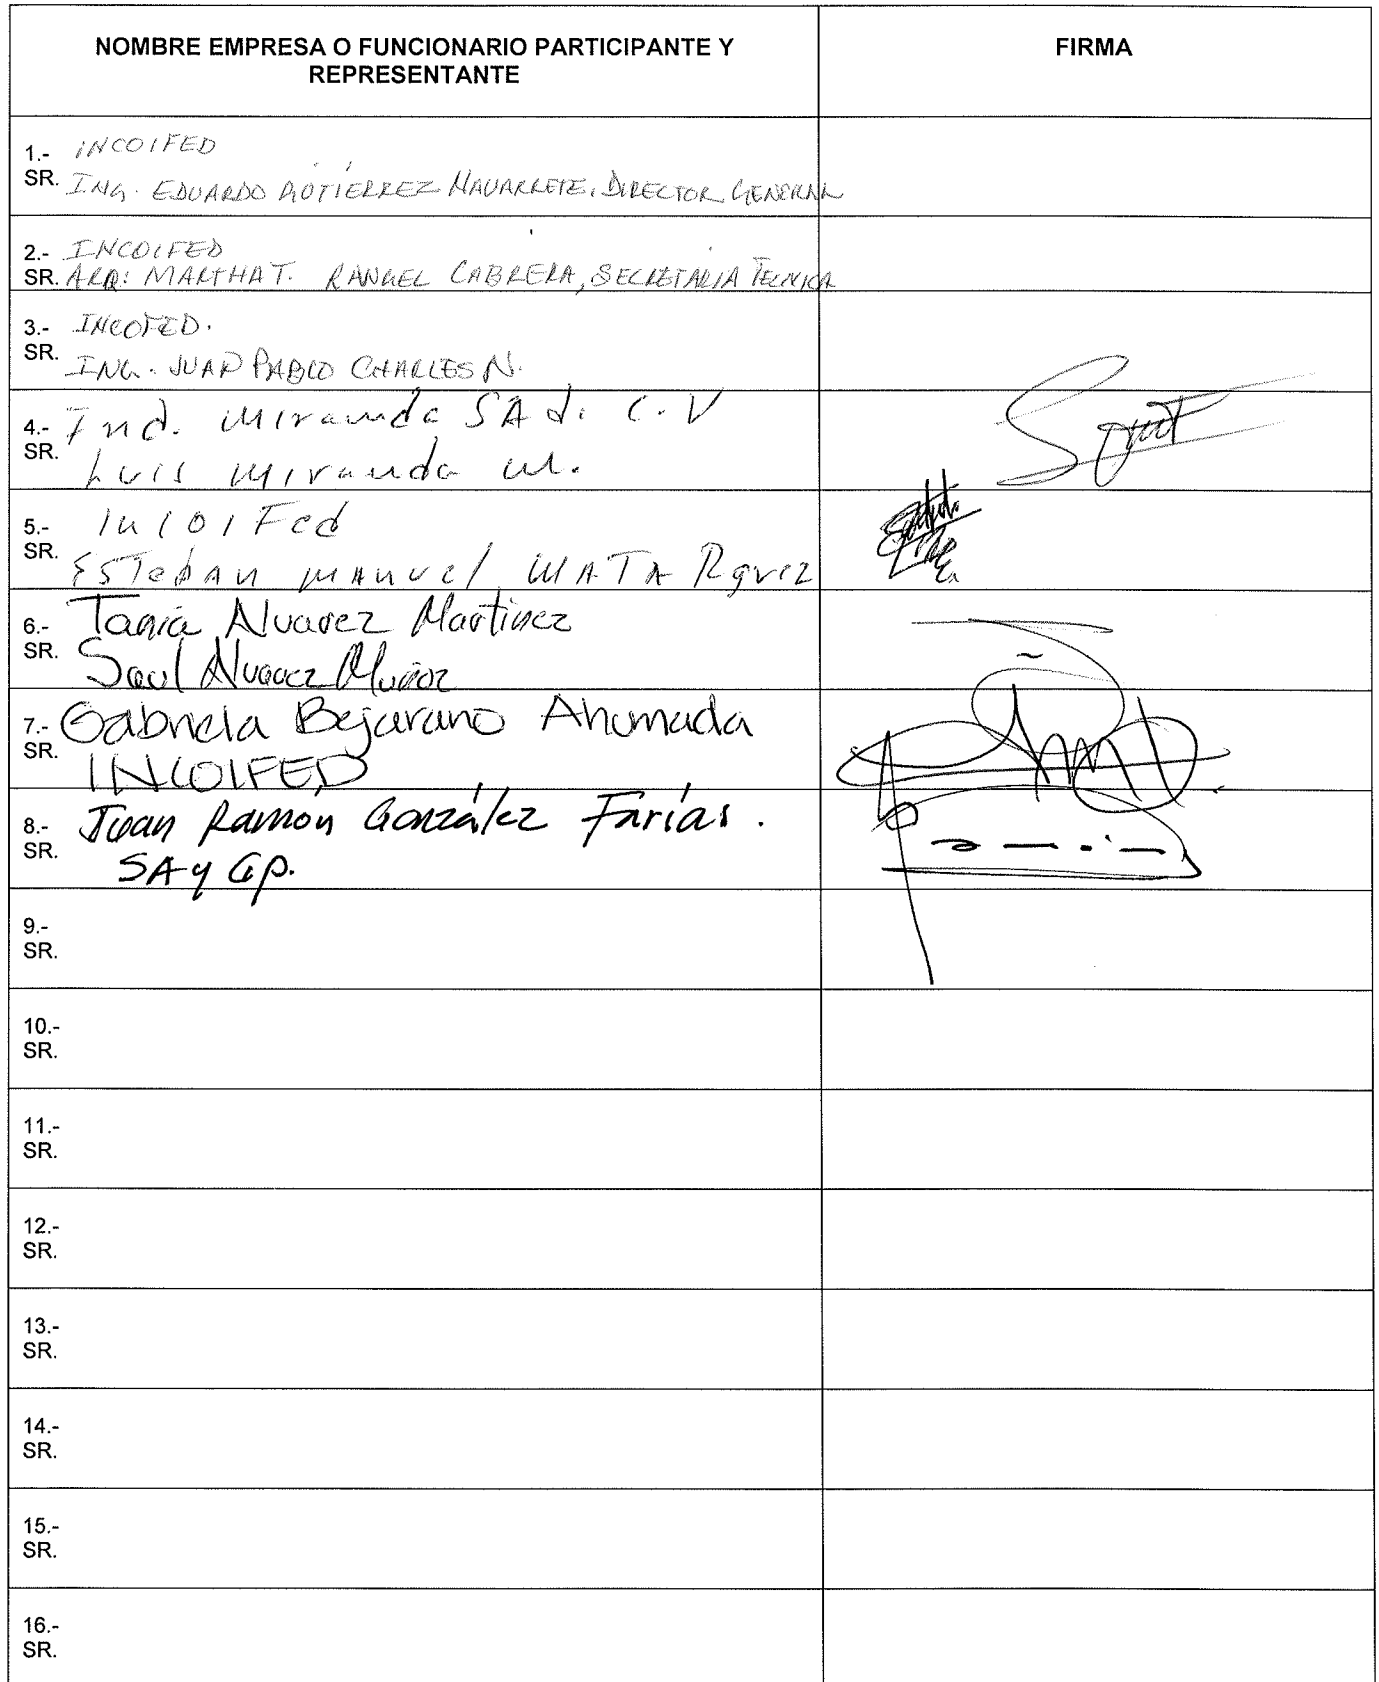 NOMBRE EMPRESA O FUNCIONARIO PARTICIPANTE Y
REPRESENTANTE
FIRMA
1.- INCOIFED
SR. ING. EDUARDO GUTIÉRREZ NAVARRETE, DIRECTOR GENERAL
2.- INCOIFED
SR. ARQ: MARTHA T. RANGEL CABRERA, SECRETARIA TECNICA
3.- INCOFED.
SR. ING. JUAN PABLO CHARLES N.
4.- Ind. Miranda SA d. C.V
SR. Luis Miranda M.
5.- InCoiFed
SR. ESTebAn MAnuel MATA Rgvez
6.- Tania Alvarez Martinez
SR. Saul Alvarez Muñoz
7.- Gabriela Bejarano Ahumada
SR. INCOIFED
8.- Juan Ramón González Farías.
SR. SA y GP.
9.-
SR.
10.-
SR.
11.-
SR.
12.-
SR.
13.-
SR.
14.-
SR.
15.-
SR.
16.-
SR.